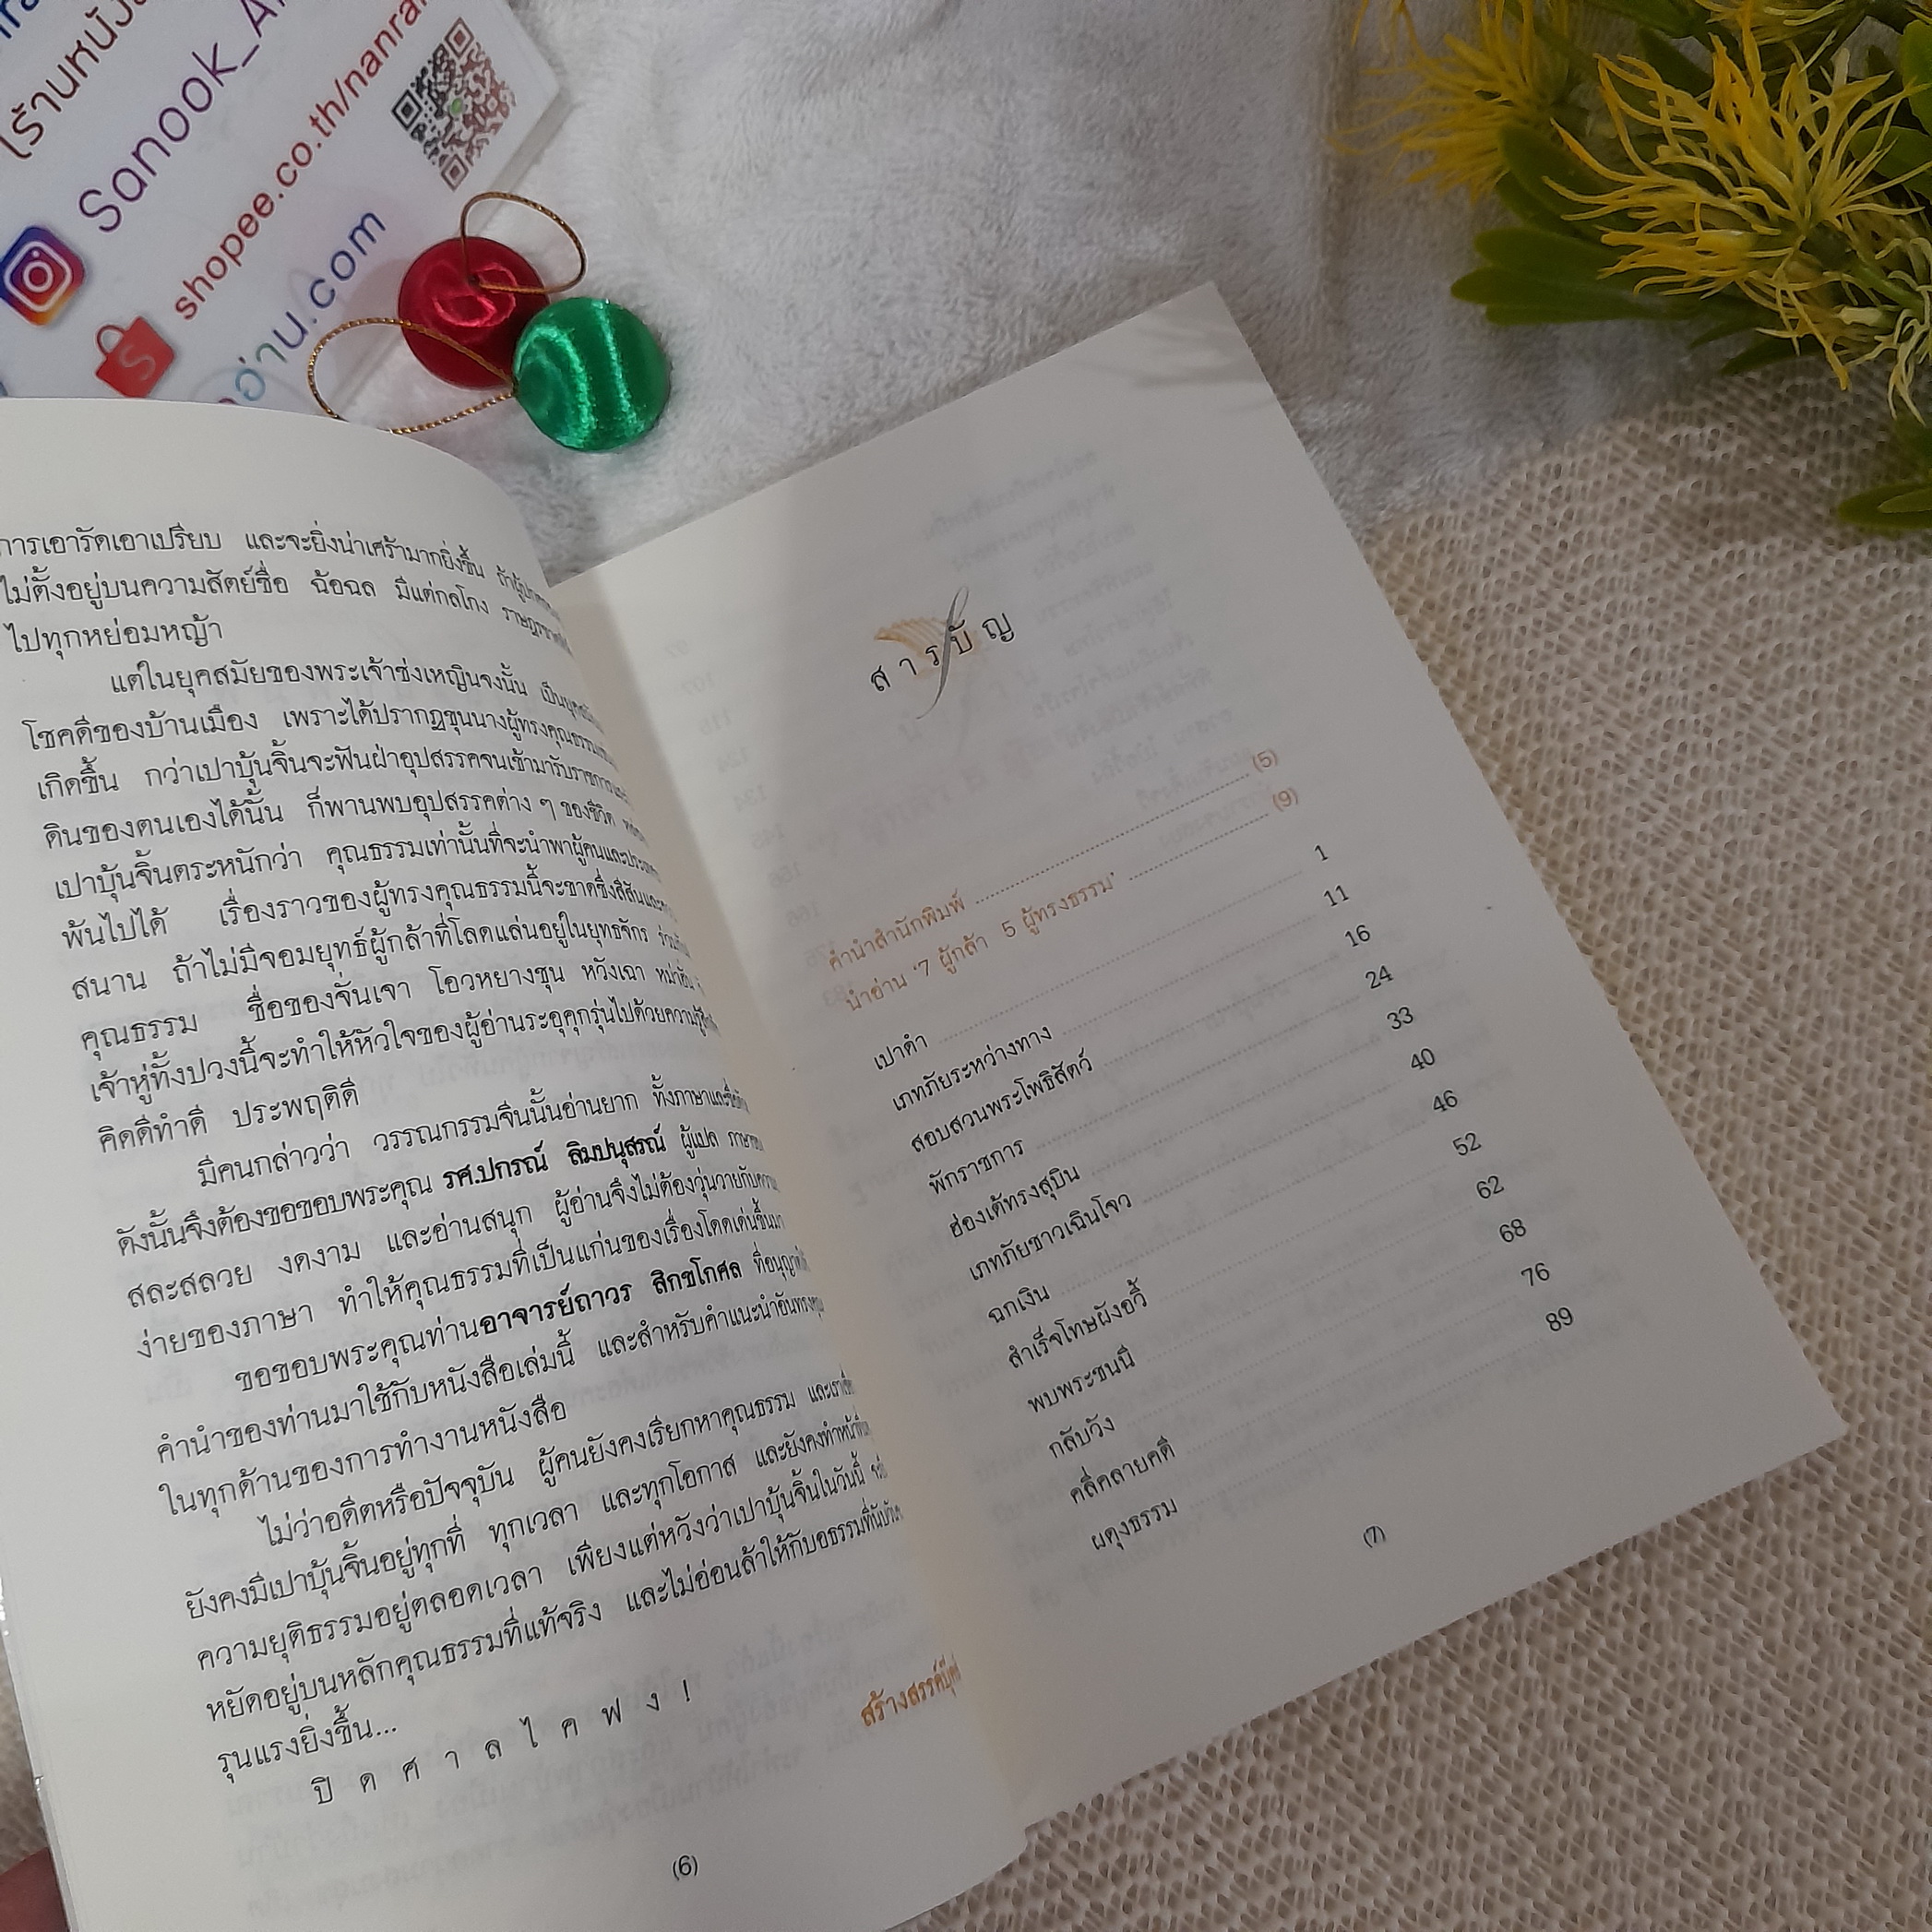 ไร้านหนัง
Sanook_A
shopee.co.th/nanra
อ่าน.com
การเอารัดเอาเปรียบ และจะยิ่งน่าเศร้ามากยิ่งขึ้น
ไม่ตั้งอยู่บนความสัตย์ซื่อ ฉ้อฉล มีแต่กลโกง
ไปทุกหย่อมหญ้า
แต่ในยุคสมัยของพระเจ้าซ่งเหญินจงนั้น
โชคดีของบ้านเมือง เพราะได้ปรากฏขุนนางผู้ทรงคุณธรรม
เกิดขึ้น กว่าเปาบุ้นจิ้นจะฟันฝ่าอุปสรรคจนเข้ามารับราชการ
ดินของตนเองได้นั้น ก็พานพบอุปสรรคต่าง ๆ ของชีวิต
เปาบุ้นจิ้นตระหนักว่า คุณธรรมเท่านั้นที่จะนำพาผู้คนและ
พ้นไปได้ เรื่องราวของผู้ทรงคุณธรรมนี้จะขาดซึ่งสีสันและ
สนาน ถ้าไม่มีจอมยุทธ์ผู้กล้าที่โลดแล่นอยู่ในยุทธจักร
คุณธรรม ชื่อของจั่นเจา โอวหยางชุน หวังเฉา หม่าฮั่น
เจ้าหู่ทั้งปวงนี้จะทำให้หัวใจของผู้อ่านระอุคุกรุ่นไปด้วยความรู้สึก
คิดดีทำดี ประพฤติดี
มีคนกล่าวว่า วรรณกรรมจีนนั้นอ่านยาก ทั้งภาษาและ
ดังนั้นจึงต้องขอขอบพระคุณ รศ.ปกรณ์ ลิมปนุสรณ์ ผู้แปล
สละสลวย งดงาม และอ่านสนุก ผู้อ่านจึงไม่ต้องวุ่นวายกับความ
ง่ายของภาษา ทำให้คุณธรรมที่เป็นแก่นของเรื่องโดดเด่นขึ้นมา
ขอขอบพระคุณท่านอาจารย์ถาวร สิกขโกศล ที่อนุญาต
คำนำของท่านมาใช้กับหนังสือเล่มนี้ และสำหรับคำแนะนำอันทรง
ในทุกด้านของการทำงานหนังสือ
ไม่ว่าอดีตหรือปัจจุบัน ผู้คนยังคงเรียกหาคุณธรรม
ยังคงมีเปาบุ้นจิ้นอยู่ทุกที่ ทุกเวลา และทุกโอกาส และยังคงทำหน้าที่
ความยุติธรรมอยู่ตลอดเวลา เพียงแต่หวังว่าเปาบุ้นจิ้นในวันนี้
หยัดอยู่บนหลักคุณธรรมที่แท้จริง และไม่อ่อนล้าให้กับอธรรมที่นับวัน
รุนแรงยิ่งขึ้น...
ปิ ด ศ า ล ไ ค ฟ ง !
สร้างสรรค์บุ๊คส์
(6)
ส า ร บั ญ
คำนำสำนักพิมพ์ ........ (5)
นำอ่าน '7 ผู้กล้า 5 ผู้ทรงธรรม' ........ (9)
เปาดำ ........ 1
เภทภัยระหว่างทาง ........ 11
สอบสวนพระโพธิสัตว์ ........ 16
พักราชการ ........ 24
ฮ่องเต้ทรงสุบิน ........ 33
เภทภัยชาวเฉินโจว ........ 40
ฉกเงิน ........ 46
สำเร็จโทษผังอวี้ ........ 52
พบพระชนนี ........ 62
กลับวัง ........ 68
คลี่คลายคดี ........ 76
ผดุงธรรม ........ 89
(7)